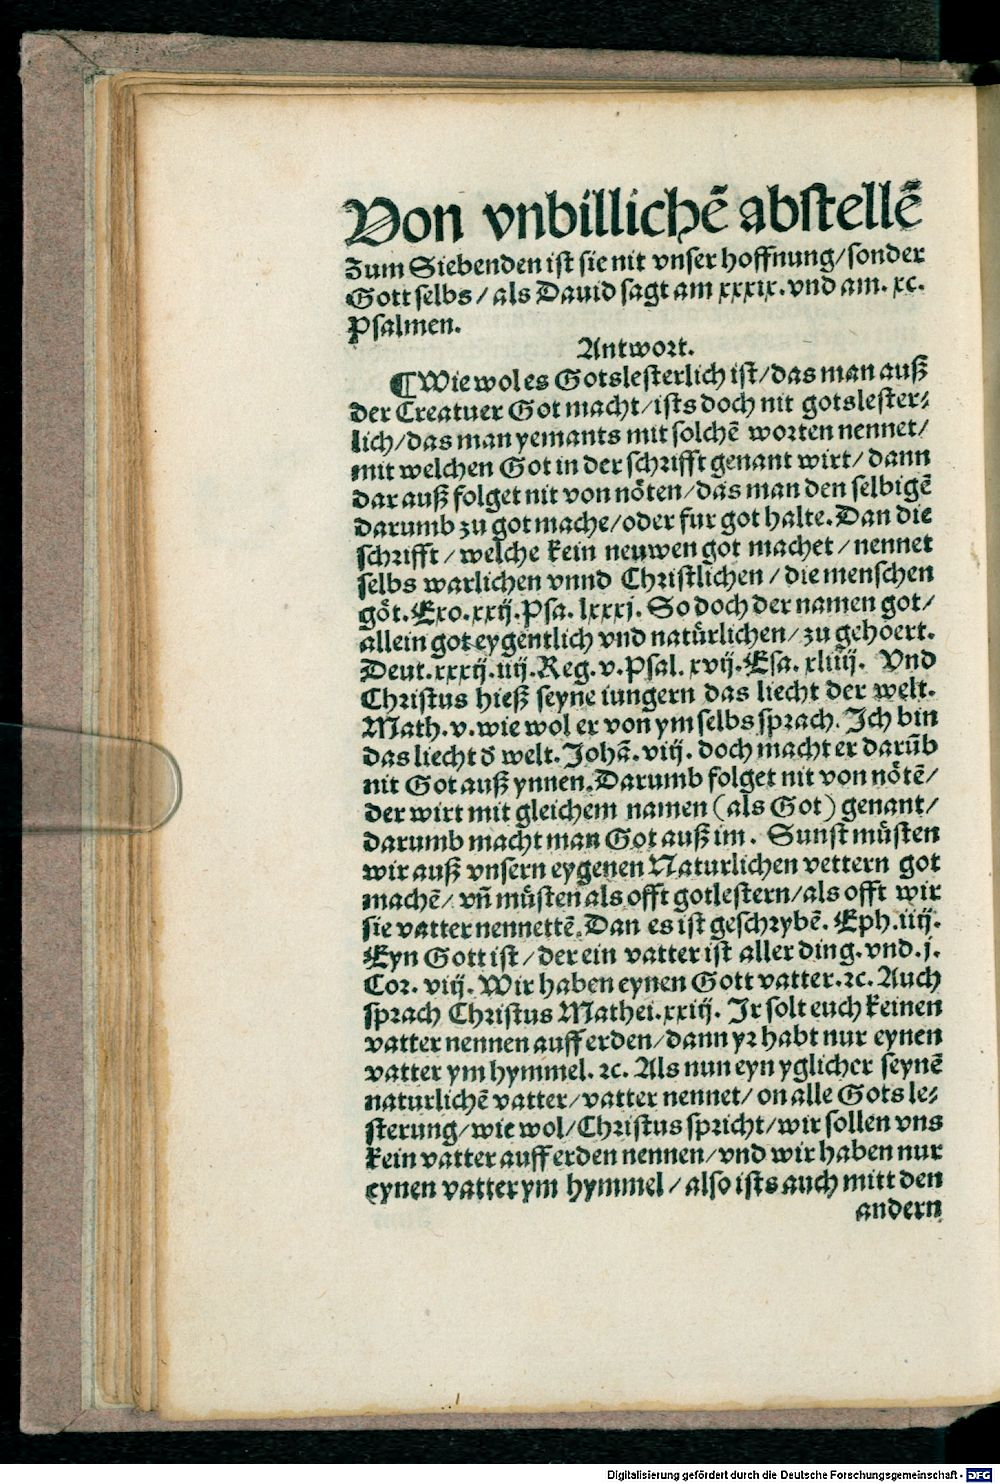 Von vnbillichē abstellē
Zum Siebenden ist sie nit vnser hoffnung/sonder
Gott selbs/als Dauid sagt am xxxix.vnd am. xc.
Psalmen.
Antwort.
¶Wie wol es Gotslesterlich ist/das man auß
der Creatuer Got macht/ists doch nit gotslester⸗
lich/das man yemants mit solchē worten nennet/
mit welchen Got in der schrifft genant wirt/dann
dar auß folget nit von nöten/das man den selbigē
darumb zu got mache/oder fur got halte.Dan die
schrifft/welche kein neuwen got machet/nennet
selbs warlichen vnnd Christlichen/die menschen
göt.Exo.xxij.Psa. lxxxj. So doch der namen got/
allein got eygentlich vnd natürlichen/zu gehoert.
Deut.xxxij.iiij.Reg.v.Psal.xvij.Esa.xliiij. Vnd
Christus hieß seyne iungern das liecht der welt.
Math.v.wie wol er von ym selbs sprach. Ich bin
das liecht d̄ welt. Johā.viij. doch macht er darūb
nit Got auß ynnen.Darumb folget nit von nötē/
der wirt mit gleichem namen (als Got) genant/
darumb macht man Got auß im. Sunst müsten
wir auß vnsern eygenen Naturlichen vettern got
machē/ vn̄ müsten als offt gotlestern/als offt wir
sie vatter nennettē.Dan es ist geschrybē. Eph.iiij.
Eyn Gott ist/der ein vatter ist aller ding.vnd.j.
Cor. viij.Wir haben eynen Gott vatter.ꝛc.Auch
sprach Christus Mathei.xxiij. Ir solt euch keinen
vatter nennen auff erden/dann yr habt nur eynen
vatter ym hymmel. ꝛc. Als nun eyn yglicher seynē
naturlichē vatter/vatter nennet/on alle Gots le⸗
sterung/wie wol/Christus spricht/wir sollen vns
kein vatter auff erden nennen/vnd wir haben nur
eynen vatter ym hymmel/also ists auch mitt den
andern
Digitalisierung gefördert durch die Deutsche Forschungsgemeinschaft - DFG